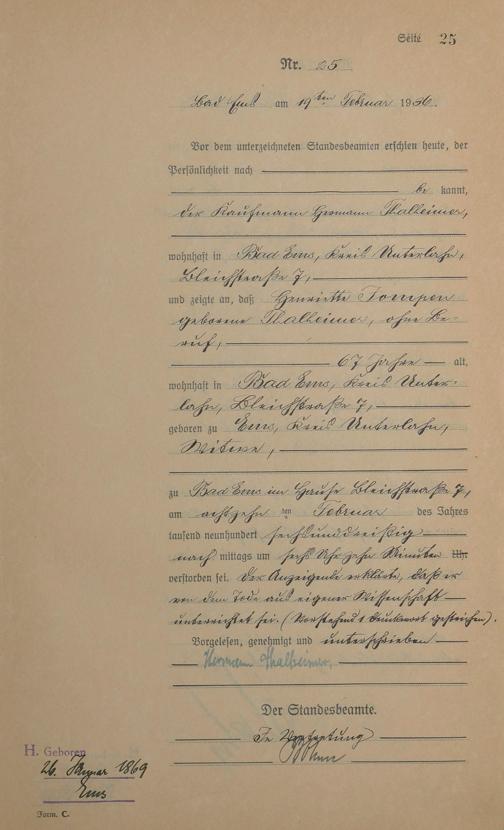 Seite 25
Nr. 25
Bad Ems am 19ten Februar 1936.
Vor dem unterzeichneten Standesbeamten erschien heute, der
Persönlichkeit nach
be kannt,
der Kaufmann Hermann Thalheimer,
wohnhaft in Bad Ems, Kreis Unterlahn,
Bleichstraße 7,
und zeigte an, daß Henriette
geborene Thalheimer, ohne Be-
ruf,
67 Jahre alt,
wohnhaft in Bad Ems, Kreis Unter-
lahn, Bleichstraße 7,
geboren zu Ems, Kreis Unterlahn,
Witwe,
zu Bad Ems im Hause Bleichstraße 7,
am achtzehn ten Februar des Jahres
tausend neunhundert sechsunddreißig
nach mittags um sechs Uhr zehn Minuten Uhr
verstorben sei. Der Anzeigende erklärte, daß er
von dem Tode aus eigener Wissenschaft
unterrichtet sei. (Vorstehend 1 Druckwort gestrichen).
Vorgelesen, genehmigt und unterschrieben
Hermann Thalheimer,
Der Standesbeamte.
In Vertretung
H. Geboren
26. Januar 1869
Ems
Form. C.